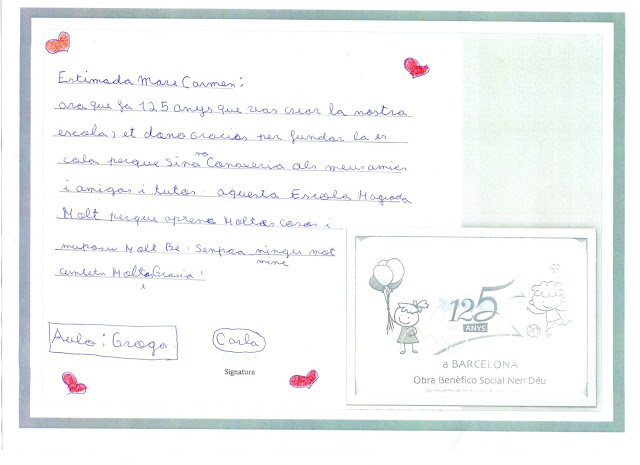 Estimada Mare Carmen:
ara que fa 125 anys que vas crear la nostra
escola, et dono Gracias per fundar la es
cola perque Sino Conaxeria als meus amics
i amigas i tutos. aquesta Escola Magrada
Molt perque aprenc Moltas Cosas i
mupasu Molt Be.
Molta Grasia
Aula: Groga
Carla
Signatura
125
ANYS
a BARCELONA
Obra Benèfico Social Nen Déu